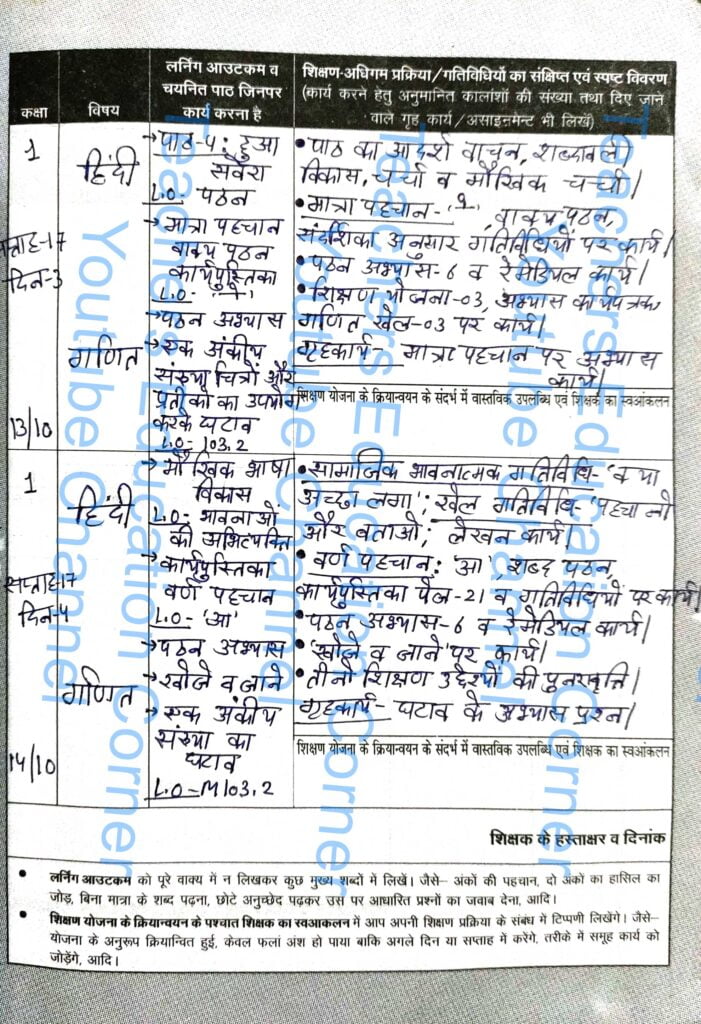 लर्निंग आउटकम व
चयनित पाठ जिनपर
कार्य करना है
शिक्षण-अधिगम प्रक्रिया/गतिविधियों का संक्षिप्त एवं स्पष्ट विवरण
(कार्य करने हेतु अनुमानित कालांशों की संख्या तथा दिए जाने
वाले गृह कार्य/असाइनमेंट भी लिखें)
कक्षा
विषय
1
हिंदी
सप्ताह-17
दिन-3
गणित
13/10
→पाठ-5: हुआ
सवेरा
L.O- पठन
→मात्रा पहचान
वाक्य पठन
कार्यपुस्तिका
L.O-
→पठन अभ्यास
→एक अंकीय
संख्या चित्रों और
प्रतीकों का उपयोग
करके घटाव
L.O- 103.2
•पाठ का आदर्श वाचन, शब्दावली
विकास, चर्चा व मौखिक चर्चा।
•मात्रा पहचान- , वाक्य पठन,
संदर्शिका अनुसार गतिविधियों पर कार्य।
•पठन अभ्यास-6 व रेमेडियल कार्य।
•शिक्षण योजना-03, अभ्यास कार्यपत्रक,
गणित खेल-03 पर कार्य।
गृहकार्य- मात्रा पहचान पर अभ्यास
कार्य।
शिक्षण योजना के क्रियान्वयन के संदर्भ में वास्तविक उपलब्धि एवं शिक्षक का स्वआंकलन
1
हिंदी
सप्ताह-17
दिन-4
गणित
14/10
→मौखिक भाषा
विकास
L.O- भावनाओं
की अभिव्यक्ति
→कार्यपुस्तिका
वर्ण पहचान
L.O- 'आ'
→पठन अभ्यास
→खोजे व जाने
→एक अंकीय
संख्या का
घटाव
L.O-M103.2
•सामाजिक भावनात्मक गतिविधि-'क्या
अच्छा लगा'; खेल गतिविधि-'पहचानो
और बताओ; लेखन कार्य।
•वर्ण पहचान: 'आ', शब्द पठन,
कार्यपुस्तिका पेज-21 व गतिविधियों पर कार्य।
•पठन अभ्यास-6 व रेमेडियल कार्य।
•'खोजे व जाने' पर कार्य।
•तीनो शिक्षण उद्देश्यों की पुनरावृत्ति।
गृहकार्य- घटाव के अभ्यास प्रश्न।
शिक्षण योजना के क्रियान्वयन के संदर्भ में वास्तविक उपलब्धि एवं शिक्षक का स्वआंकलन
शिक्षक के हस्ताक्षर व दिनांक
• लर्निंग आउटकम को पूरे वाक्य में न लिखकर कुछ मुख्य शब्दों में लिखें। जैसे– अंकों की पहचान, दो अंकों का हासिल का
जोड़, बिना मात्रा के शब्द पढ़ना, छोटे अनुच्छेद पढ़कर उस पर आधारित प्रश्नों का जवाब देना, आदि।
• शिक्षण योजना के क्रियान्वयन के पश्चात शिक्षक का स्वआकलन में आप अपनी शिक्षण प्रक्रिया के संबंध में टिप्पणी लिखेंगे। जैसे–
योजना के अनुरूप क्रियान्वित हुई, केवल फलां अंश हो पाया बाकि अगले दिन या सप्ताह में करेंगे, तरीके में समूह कार्य को
जोड़ेंगे, आदि।
Teachers Education Corner
Youtube Channel
Teachers Education Corner
Youtube Channel
Teachers Education Corner
Youtube Channel